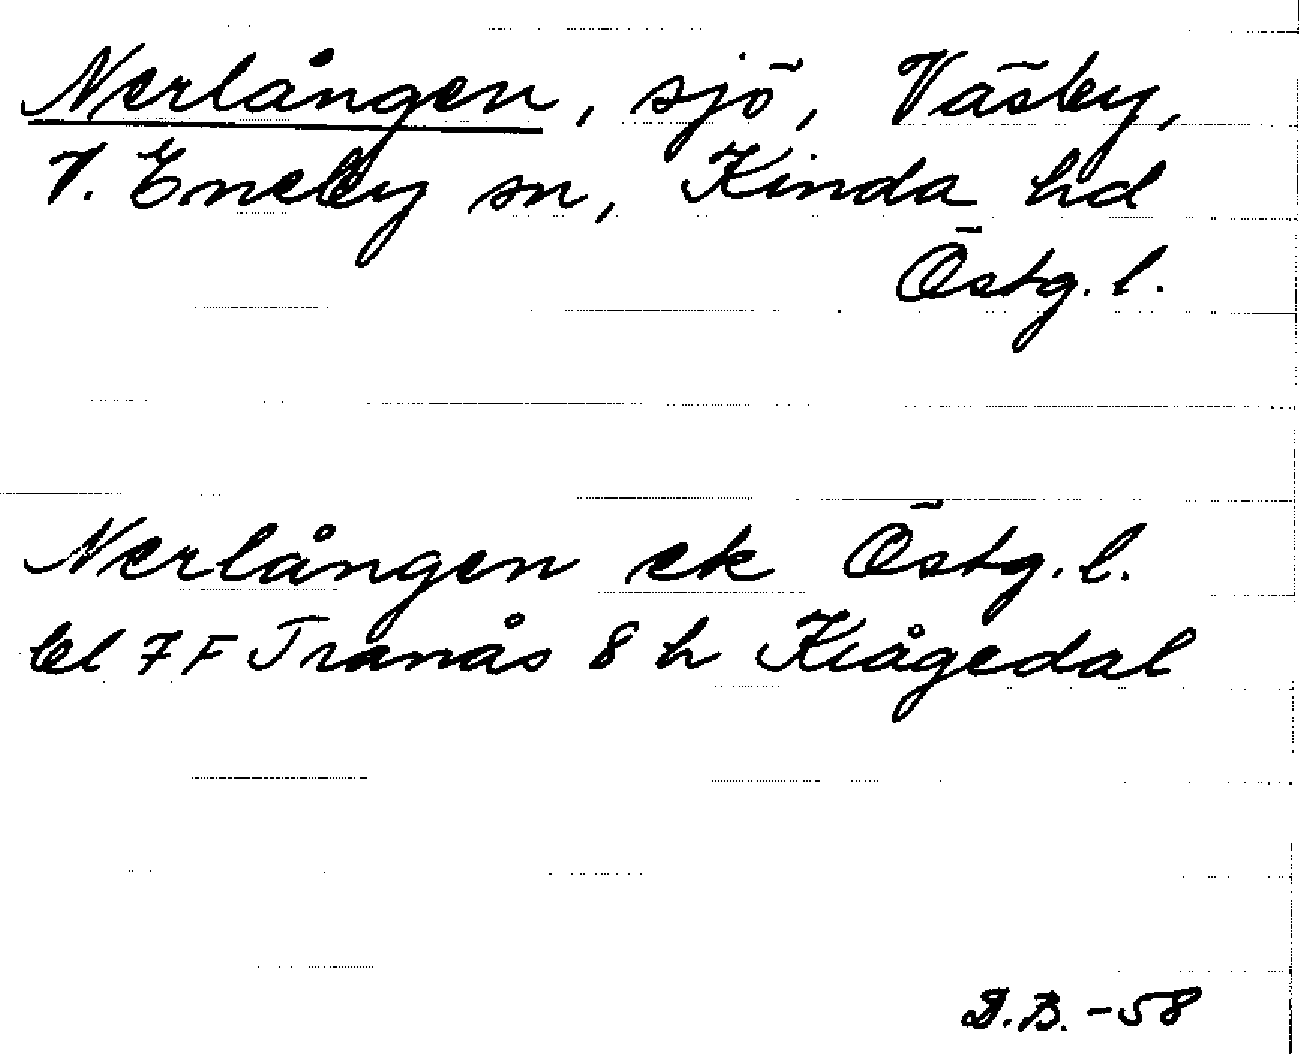 Nerlången, sjö, Väsby,
V. Eneby sn, Kinda hd
Östg. l.
Nerlången ek Östg. l.
bl 7 F Tranås 8 h Klågedal
D.B. -58